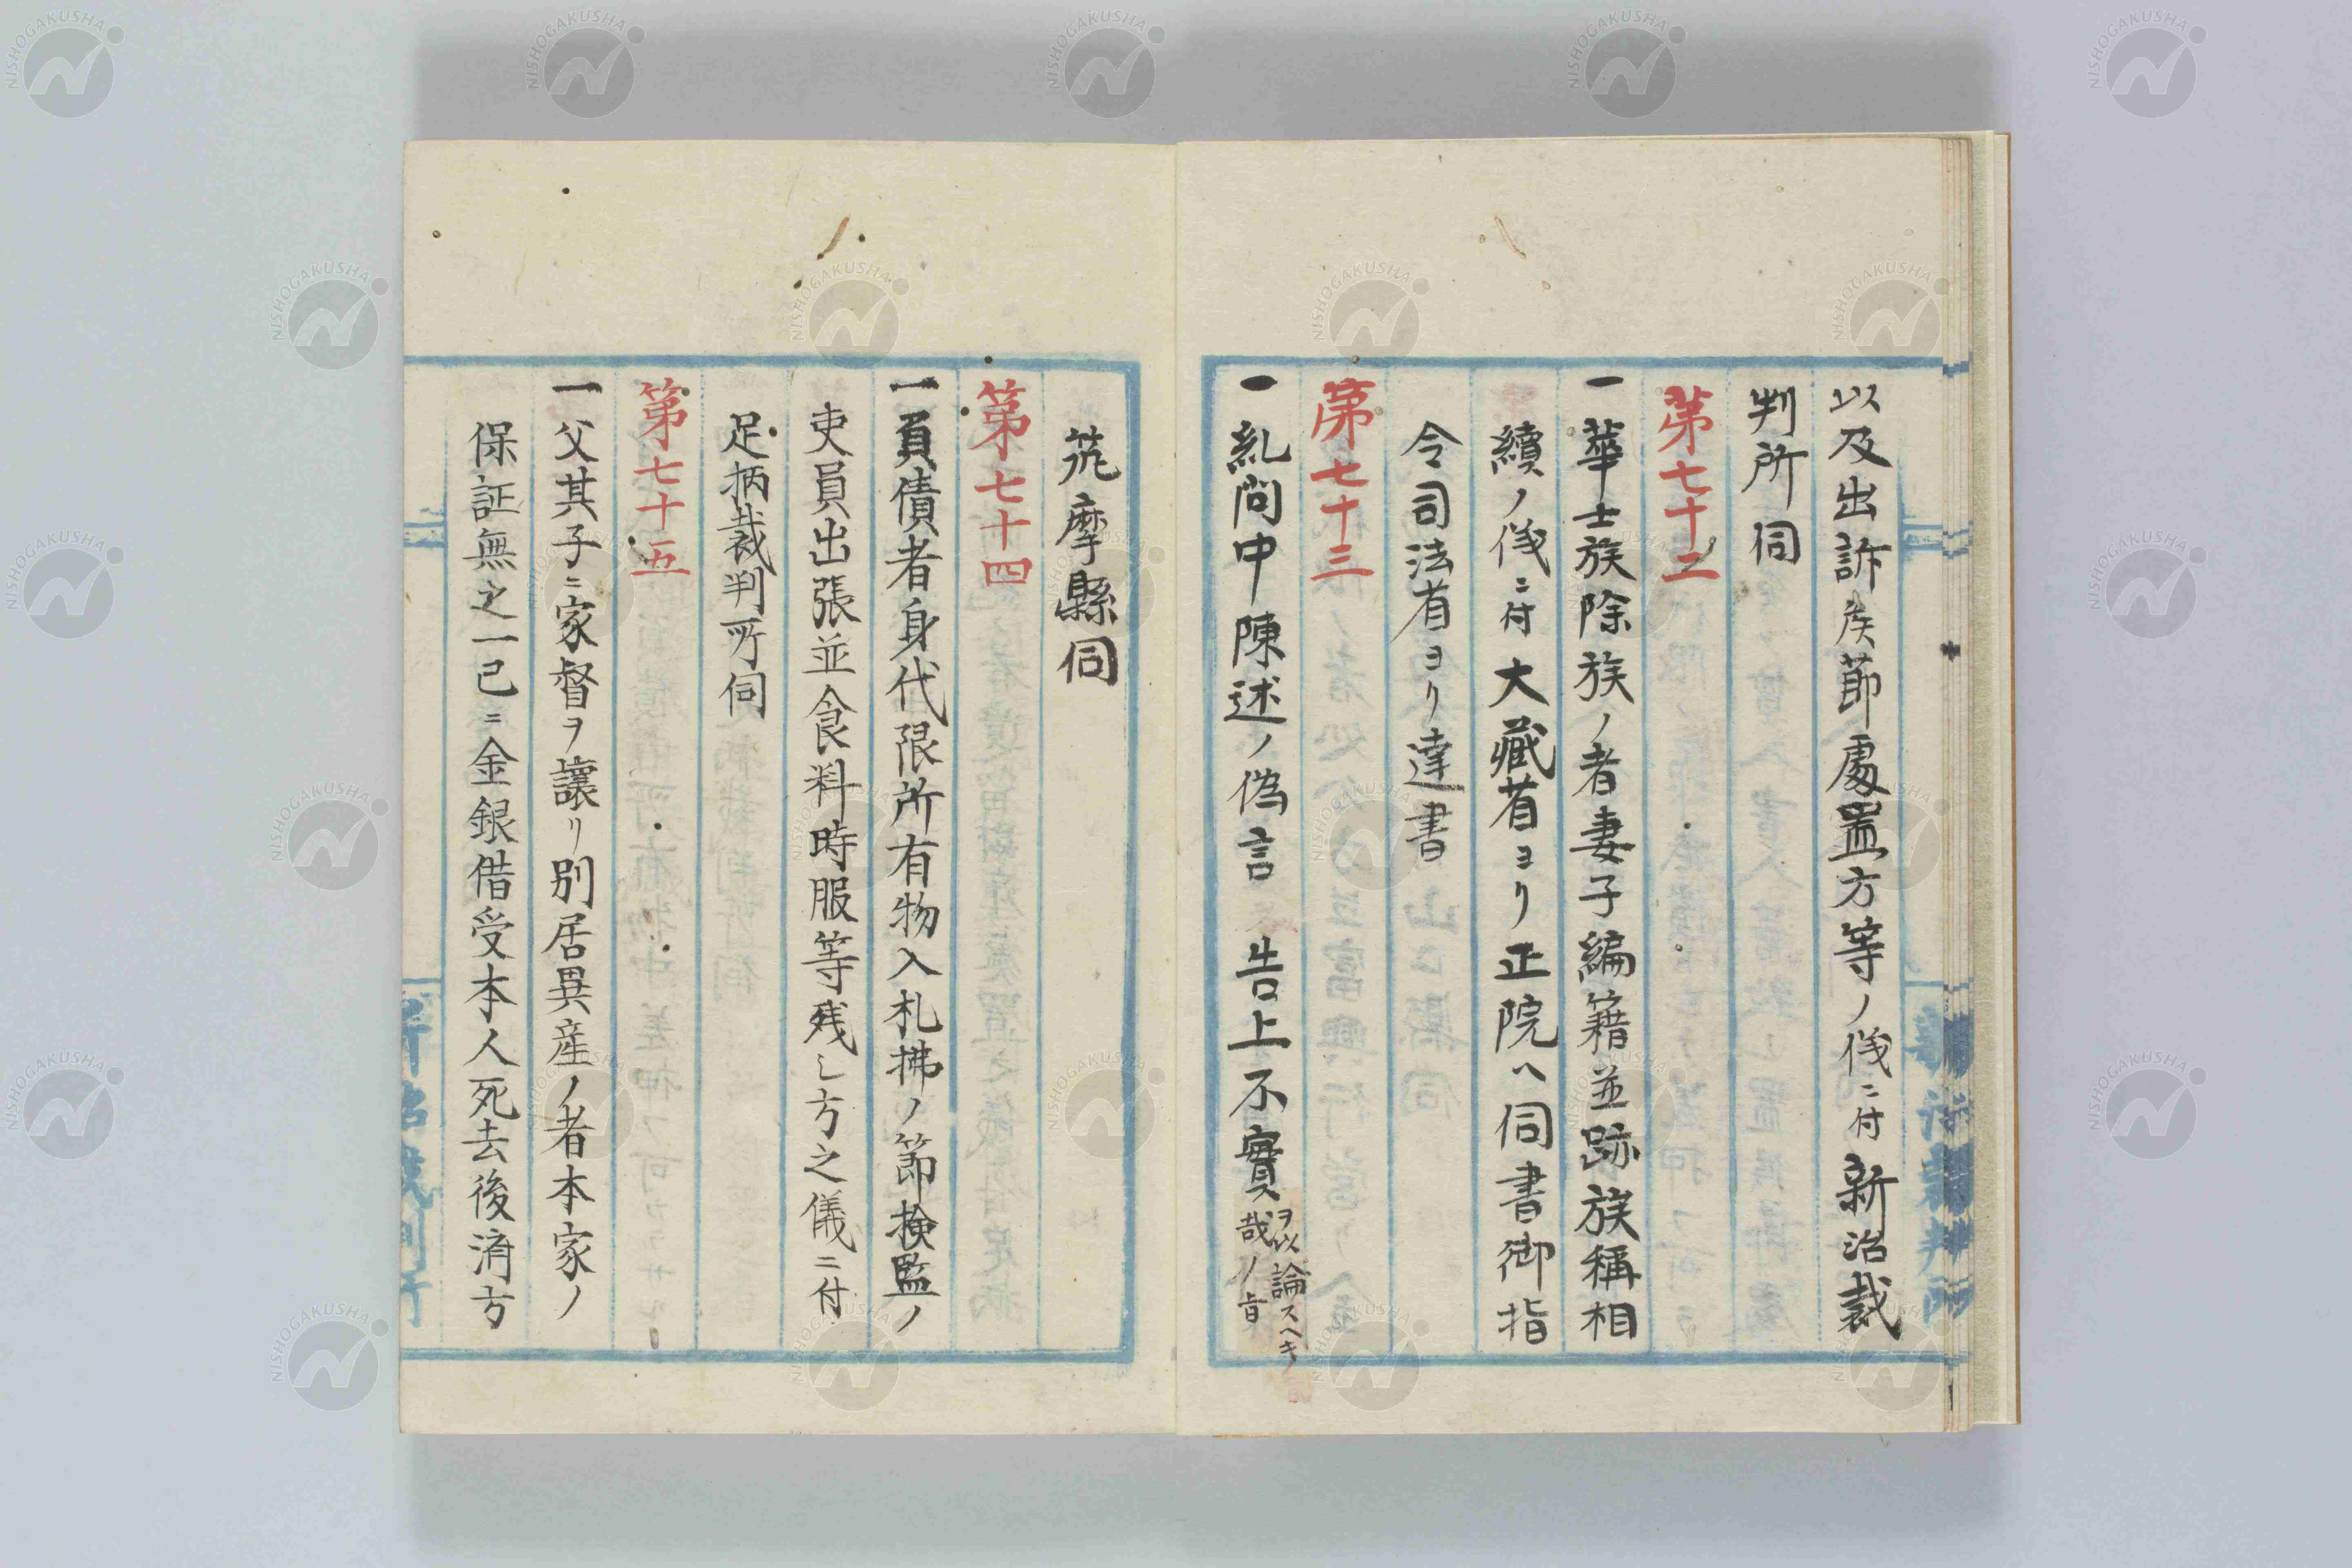 以及出訴候節處置方等ノ儀ニ付新治裁
判所伺
第七十二
一華士族除族ノ者妻子編籍並跡族稱相
續ノ儀ニ付大藏省ヨリ正院ヘ伺書御指
令司法省ヨリ達書
第七十三
一糺問中陳述ノ偽言ハ告上不實ヲ以論スヘキ
哉ノ旨
筑摩縣伺
第七十四
一負債者身代限所有物入札拂ノ節検監ノ
吏員出張並食料時服等残シ方之儀ニ付
足柄裁判所伺
第七十五
一父其子ニ家督ヲ讓リ別居異産ノ者本家ノ
保証無之一己ニ金銀借受本人死去後済方
新治裁判所